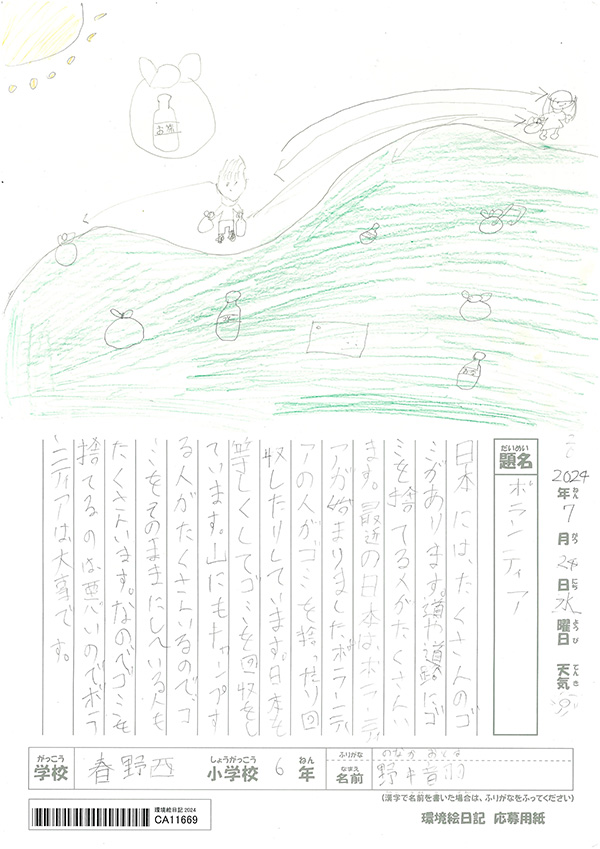 お茶
2024年7月24日水曜日 天気
ねん がつ にち ようび てんき
だいめい
題名 ボランティア
日本には、たくさんのゴ
ミがあります。道や道路にゴ
ミを捨てる人がたくさんい
ます。最近の日本は、ボランティ
アが始まりました。ボランティ
アの人がゴミを捨ったり回
収したりしています。日本を
しくしてゴミを回収をし
ています。山にもキャンプす
る人がたくさんいるので、ゴ
ミをそのままにしている人も
たくさんいます。なのでゴミを
捨てるのは悪いのでボラ
ンティアは、大事です。
がっこう しょうがっこう ねん
学校 春野西 小学校 6 年
ふりがな のなか おとは
なまえ
名前 野中音羽
(漢字で名前を書いた場合は、ふりがなをふってください)
環境絵日記 2024
CA11669
環境絵日記 応募用紙